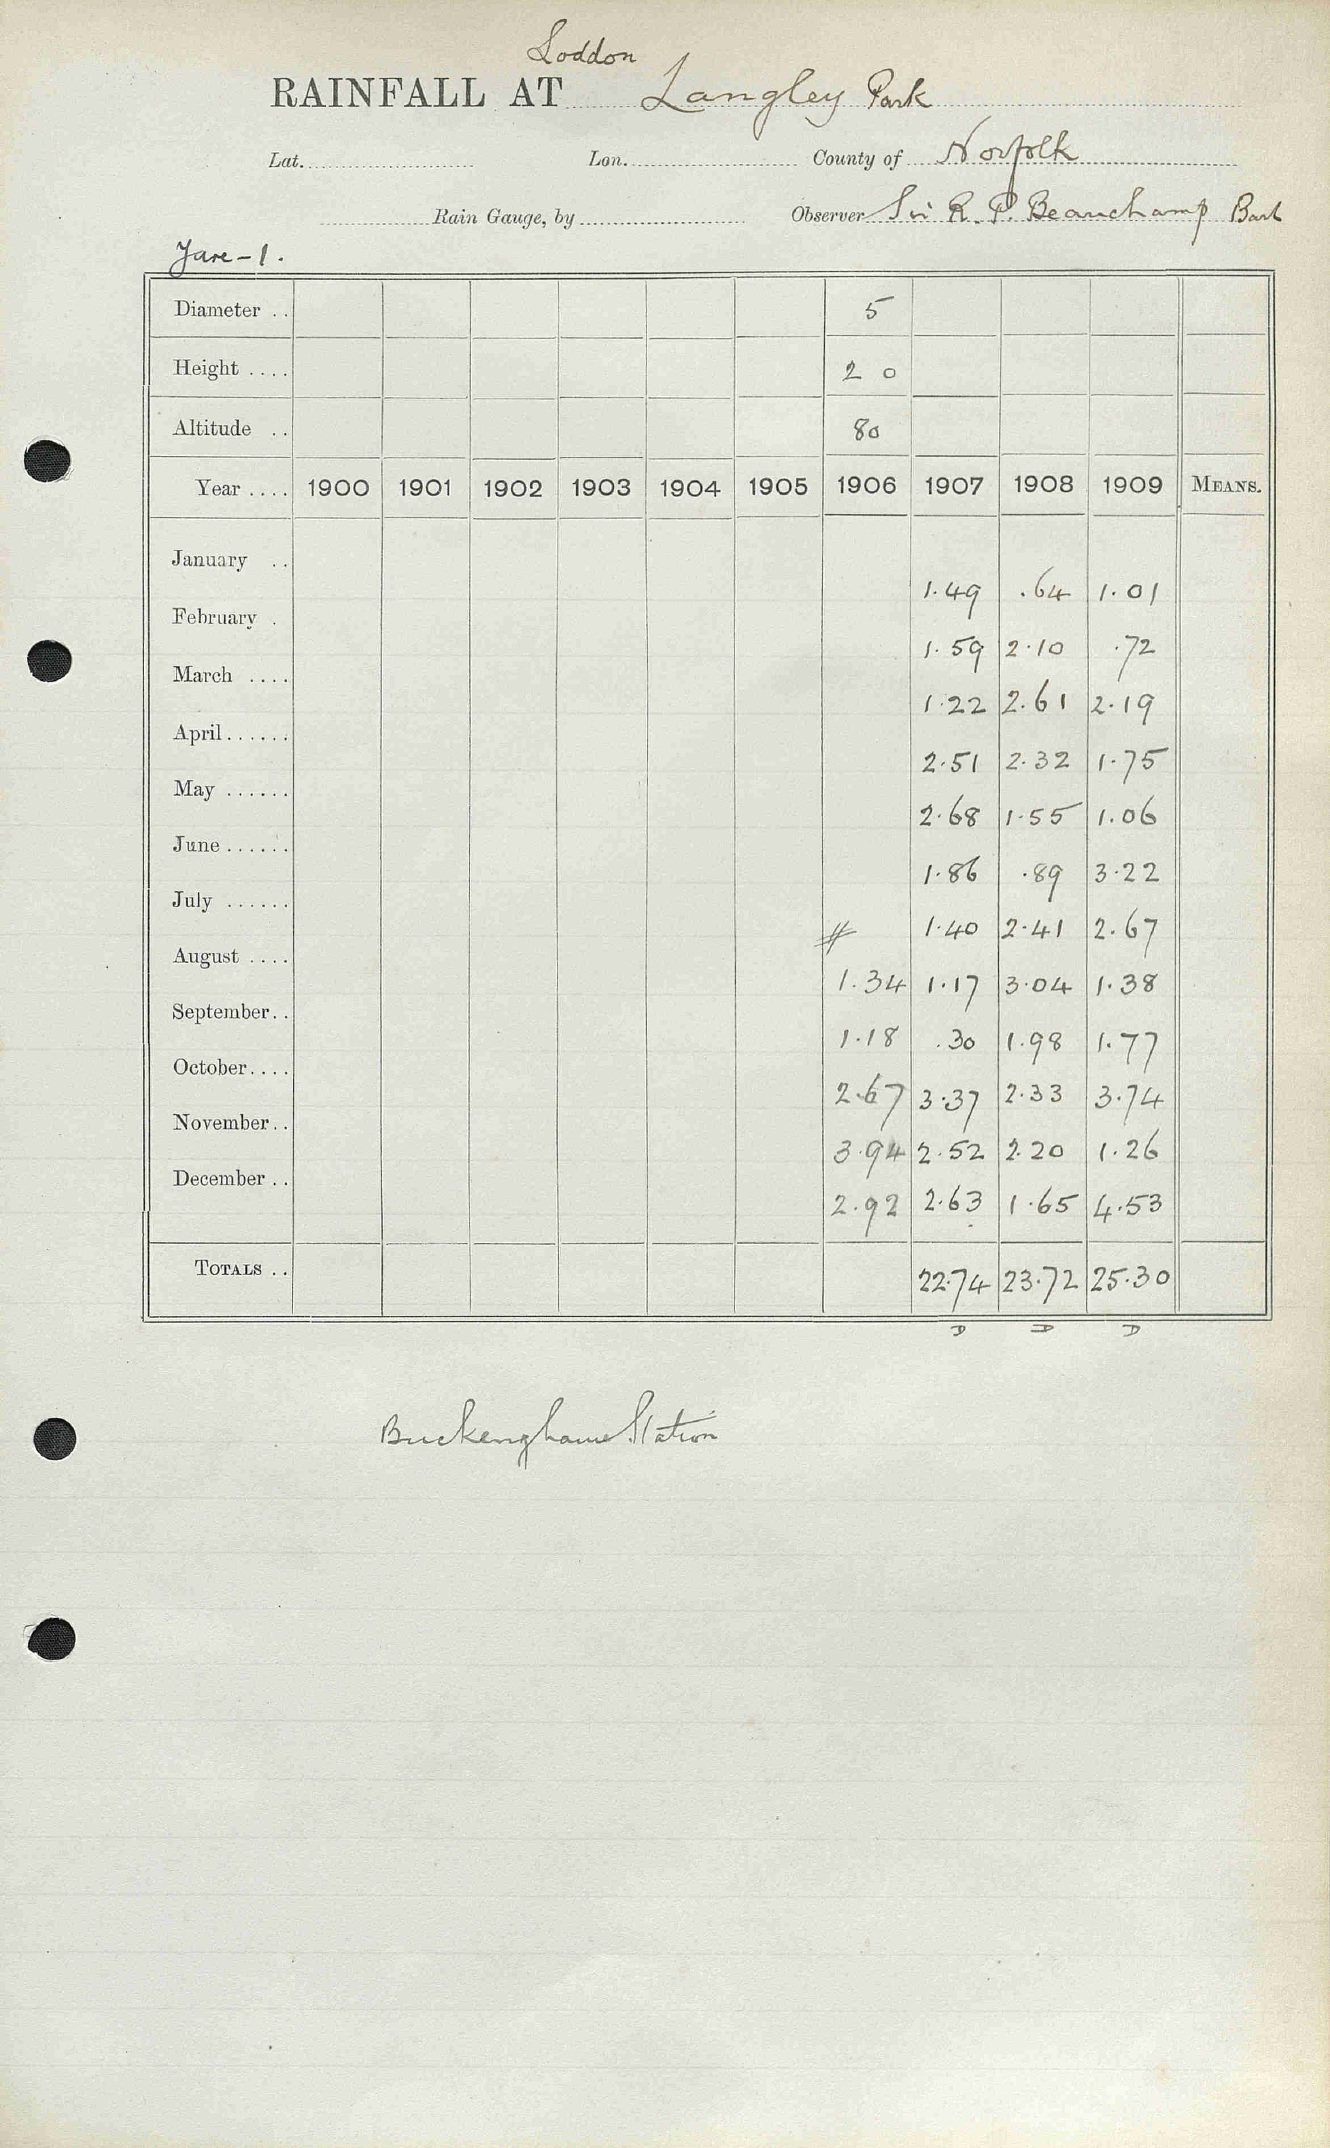 Loddon
RAINFALL AT Langley Park
Lat. Lon. County of Norfolk
Rain Gauge, by Observer Sir R. P. Beauchamp Bart
Yare-1.
Diameter .. 5
Height .... 2 0
Altitude .. 80
Year .... 1900 1901 1902 1903 1904 1905 1906 1907 1908 1909 MEANS.
January .. 1.49 .64 1.01
February . 1.59 2.10 .72
March .... 1.22 2.61 2.19
April...... 2.51 2.32 1.75
May ...... 2.68 1.55 1.06
June ...... 1.86 .89 3.22
July ...... 1.40 2.41 2.67
August .... 1.34 1.17 3.04 1.38
September.. 1.18 .30 1.98 1.77
October.... 2.67 3.37 2.33 3.74
November.. 3.94 2.52 2.20 1.26
December .. 2.92 2.63 1.65 4.53
TOTALS .. 22.74 23.72 25.30
D D D
Buckenghame Station